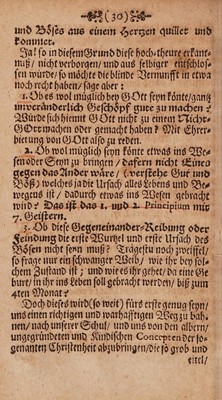 (30)
und Böses aus einem Hertzen quillet und
kommet.
Ja! so in diesem Grund diese hoch-theure erkant-
nuß/ nicht verborgen/ und aus selbiger entschlos-
sen würde/ so möchte die blinde Vernunfft in etwa
noch recht haben/ sage aber:
1. Ob es wol müglich bey GOtt seyn könte/ gantz
unveränderlich Geschöpf gute zu machen?
Würde sich hiemit GOtt nicht zu einem Nicht-
GOtt machen oder gemacht haben? Mit Ehrer-
bietung von GOtt also zu reden.
2. Ob wol müglich seyn könte etwas ins We-
sen oder Seyn zu bringen/ dafern nicht Eines
gegen das Ander wäre/ (verstehe Gut und
Böß) welches ja die Ursach alles Lebens und Be-
wegens ist/ dadurch etwas ins Wesen gebracht
wird? Das ist das 1. und 2. Principium mit
7. Geistern.
3. Ob diese Gegeneinander-Reibung oder
Feindung die erste Wurtzel und erste Ursach des
Bösen nicht seyn muß? Trägstu noch zweiffel/
so frage nur ein schwanger Weib/ wie ihr bey sol-
chem Zustand ist; und wie es ihr gehet/ da eine Ge-
burt in ihr ins Leben soll gebracht werden/ biß zum
4ten Monat?
Doch dieses wird (so weit) fürs erste genug seyn/
uns einen richtigen und warhafftigen Weg zu bah-
nen/ nach unserer Schul/ und uns von den albern/
ungegründeten und Kindischen Concepten der so-
genanten Christenheit abzubringen/ die so grob und
eitel/